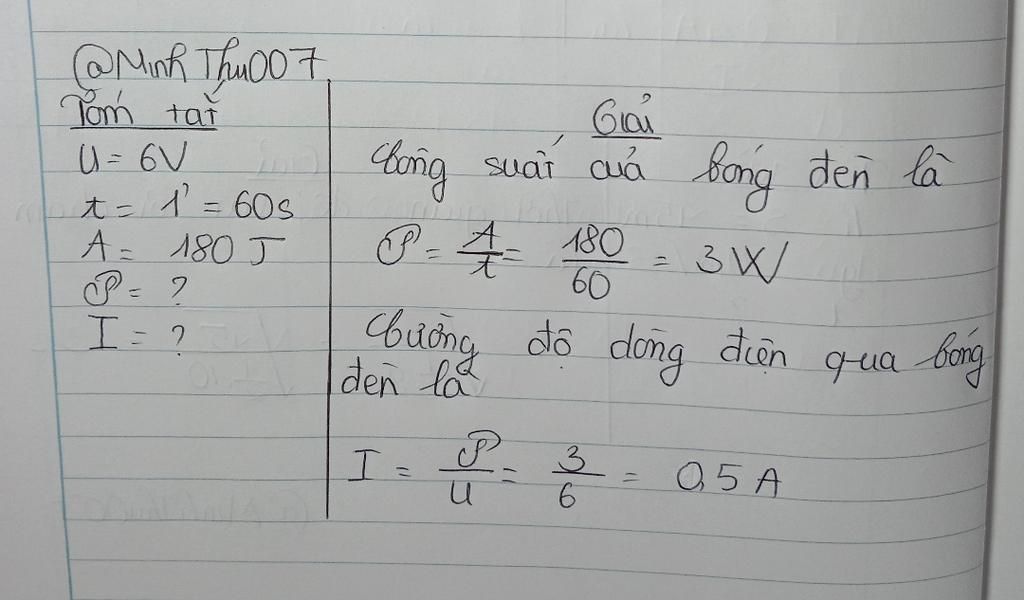 @MinhThu007
Tóm tắt
U = 6V
t = 1' = 60s
A = 180 J
P = ?
I = ?
Giải
Công suất của bóng đèn là
P = A/t = 180/60 = 3 W
Cường độ dòng điện qua bóng
đèn là
I = P/U = 3/6 = 0,5 A